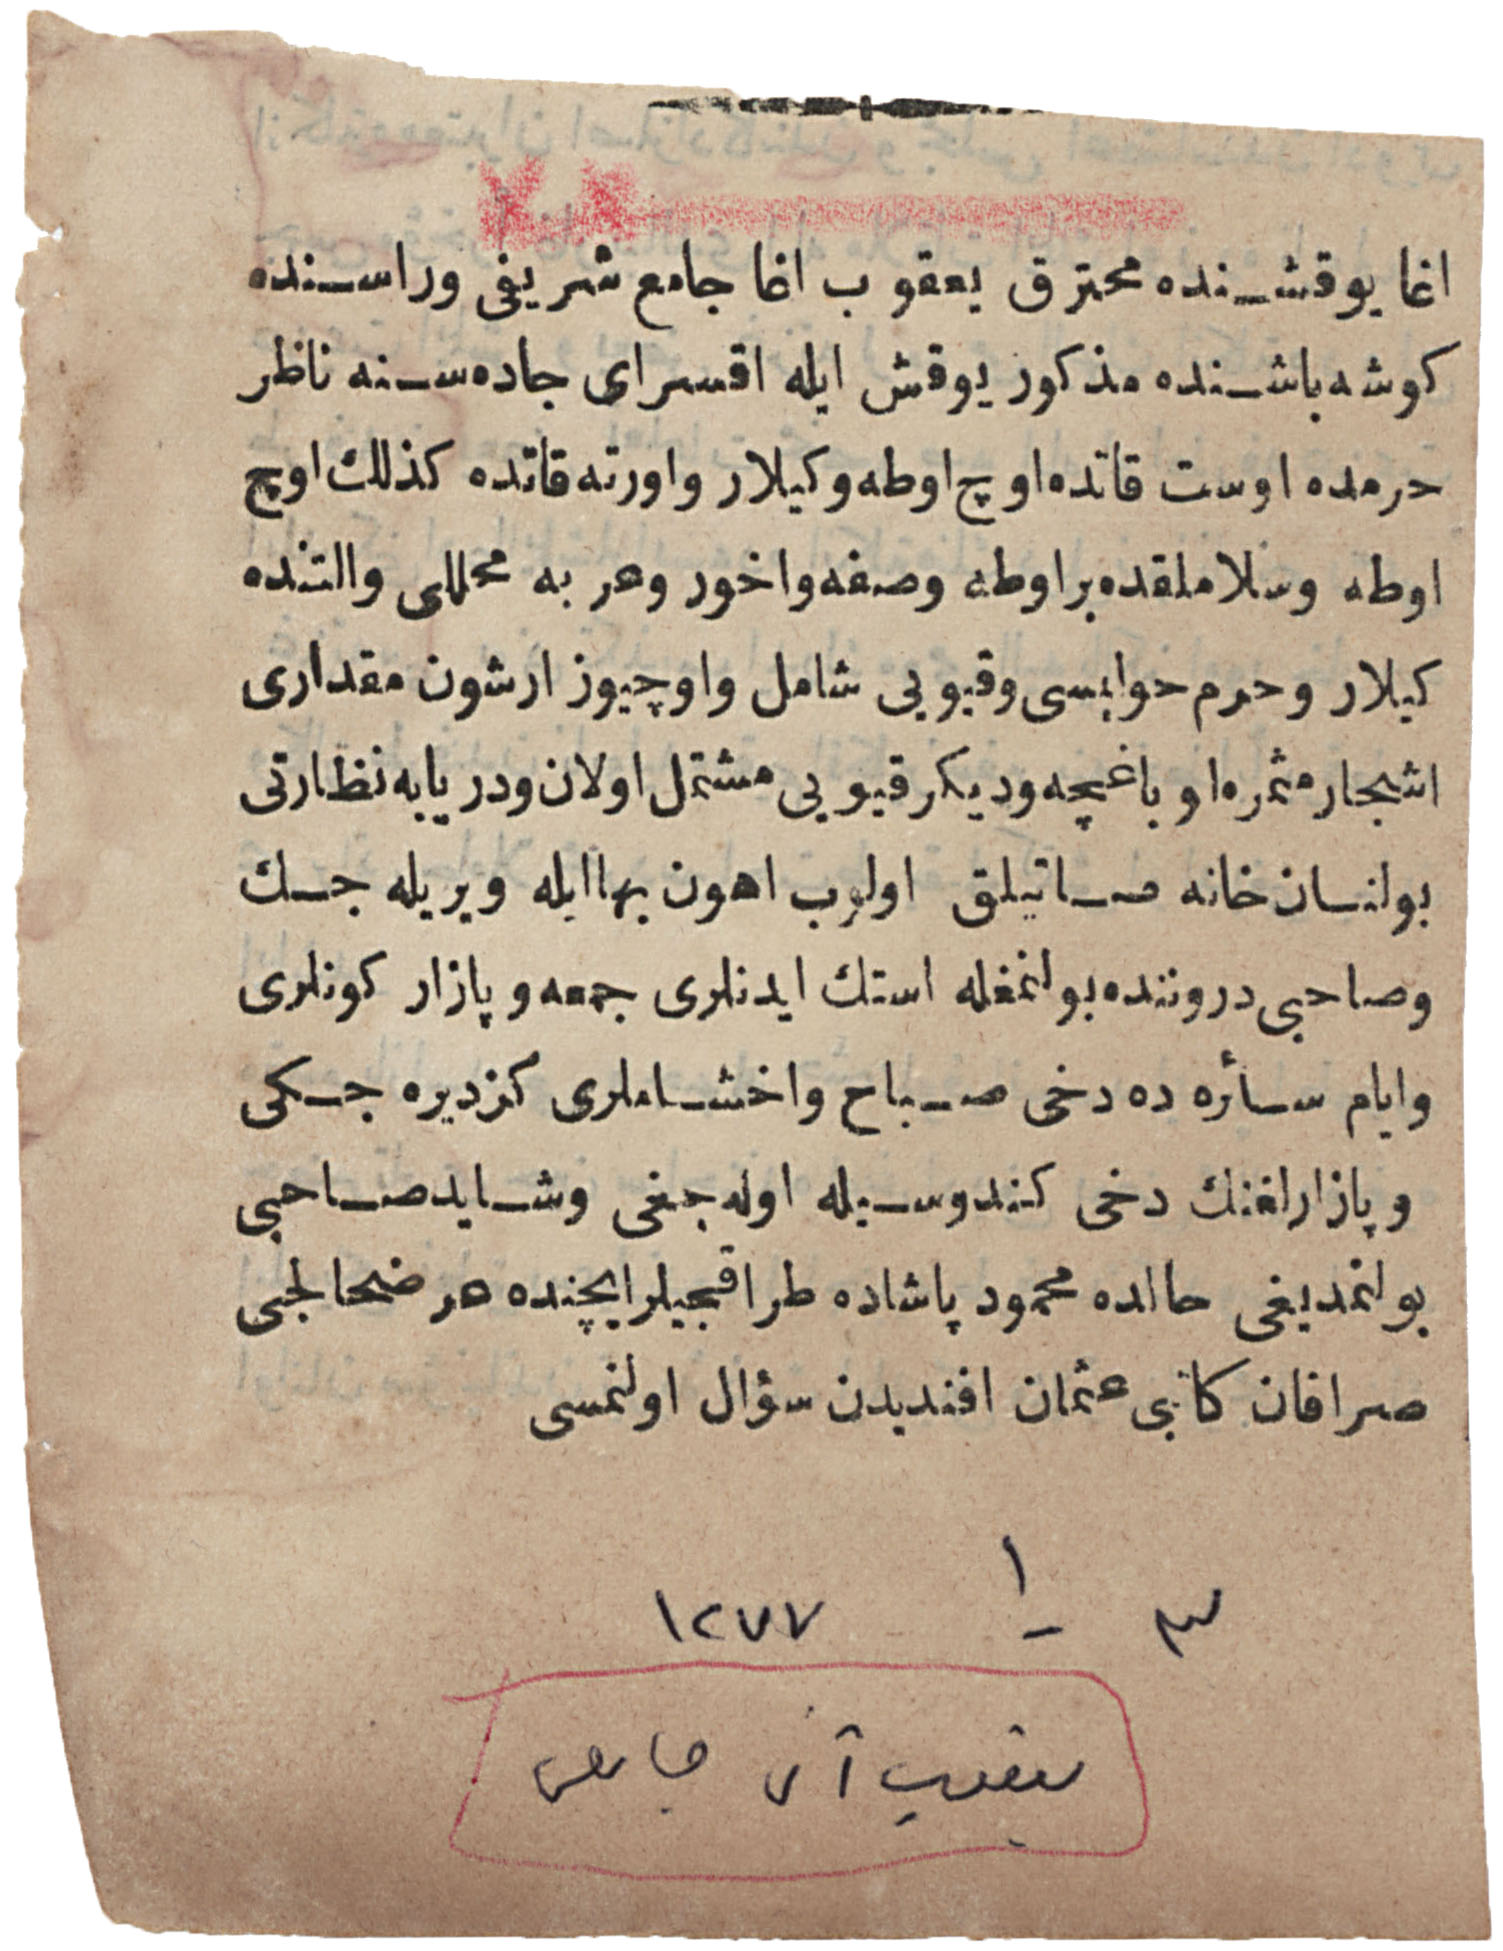 اغا يوقشنده محترق يعقوب اغا جامع شريفى وراسنده
كوشه باشنده مذكور يوقش ايله اقسراى جاده سنه ناظر
حرمده اوست قاتده اوچ اوطه وكيلار واورته قاتده كذلك اوچ
اوطه وسلاملقده بر اوطه وصفه واخور وعربه محللى والتنده
كيلار وحرم حوليسى وقيويى شامل واوچيوز ارشون مقدارى
اشجار مثمره لو باغچه وديكر قيويى مشتمل اولان ودريايه نظارتى
بولنان خانه صاتيلق اولوب اهون بها ايله ويريله جك
وصاحبى دروننده بولنمغله استك ايدنلرى جمعه و پازار كونلرى
وايام سائره ده دخى صباح واخشاملرى كزديره جكى
و پازارلغنك دخى كندوسيله اوله جغى وشايد صاحبى
بولنمديغى حالده محمود پاشاده طراقجيلر ايچنده عرضحالجى
صرافان كاتبى عثمان افنديدن سؤال اولنمسى
٣ ١ ١٢٧٧
يعقوب آغا جامعى